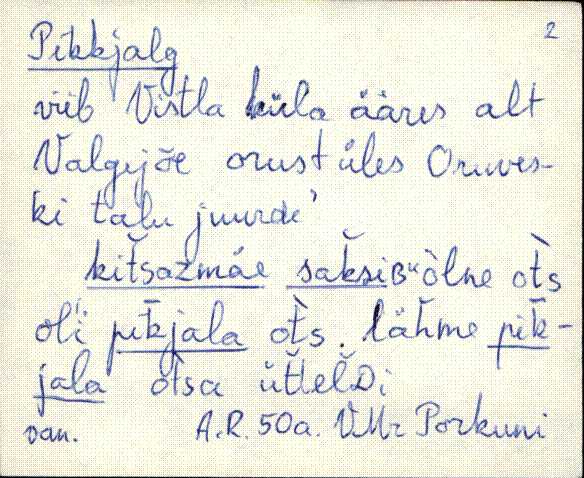 Pikkjalg 2
viib Vistla küla ääres alt
Valgejõe orust üles Oruves-
ki talu juurde
kiťsazmäe saksiʙᵘòlne ot̀s
oĺi pikjala ot̀s. lähme pik-
jala otsa üťťelᴅi
van. A.R. 50a. VMr Porkuni